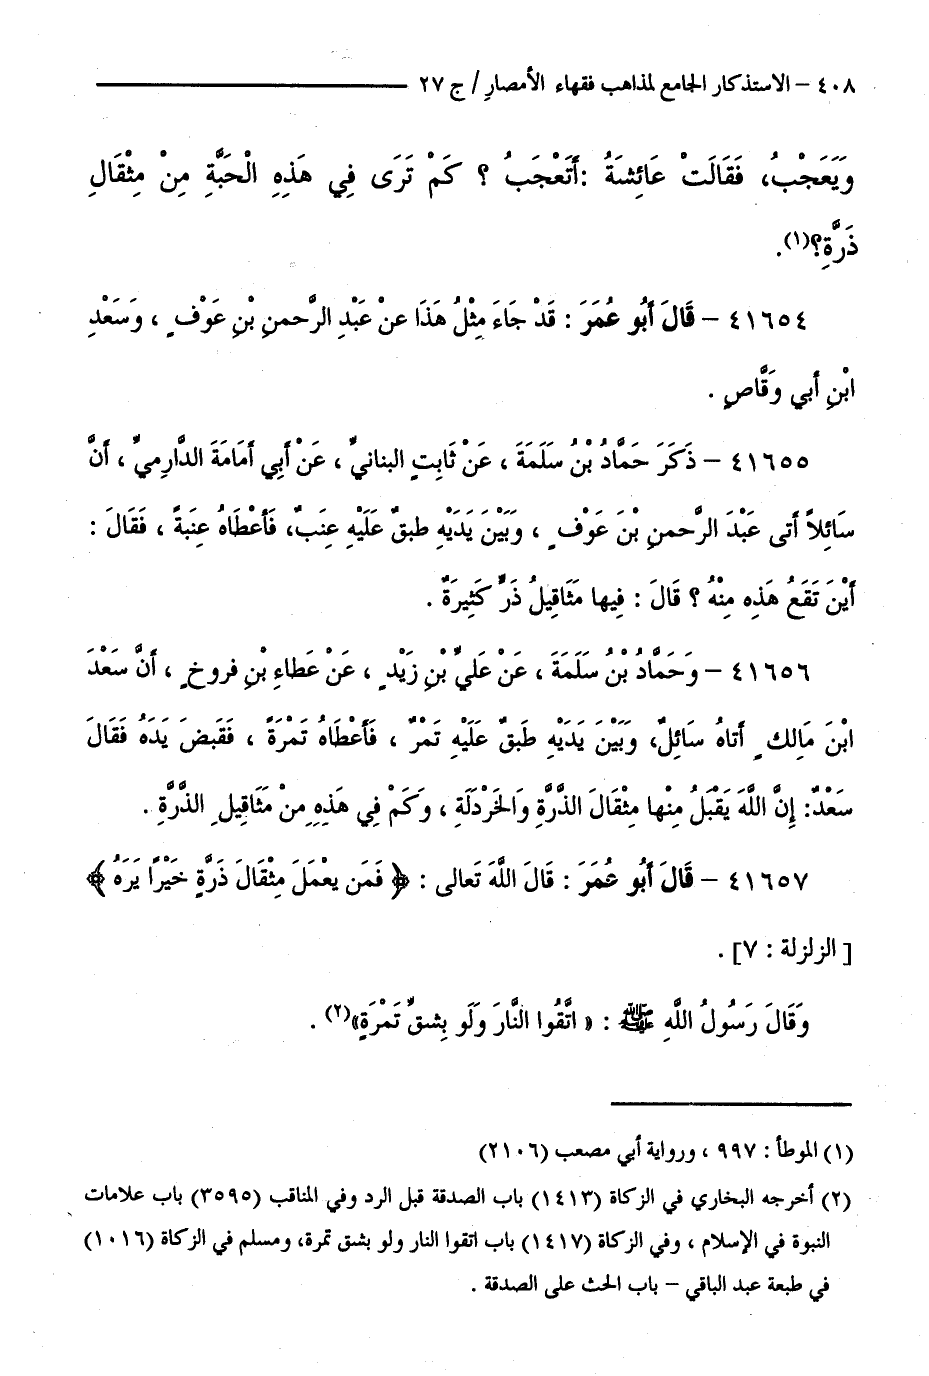 ٤٠٨ – الاستذكار الجامع لمذاهب فقهاء الأمصارِ / ج ٢٧
وَيَعَجْبُ، فَقَالَتْ عَائِشَةُ :أَتَعْجَبُ ؟ كَمْ تَرَى فِي هَذِهِ الْحَبَّةِ مِنْ مِثْقَالِ
ذَرَّةٍ؟(١).
٤١٦٥٤ – قَالَ أَبُو عُمَرَ : قَدْ جَاءَ مِثْلُ هَذَا عنْ عَبْدِ الرَّحمنِ بْنِ عَوْفٍ ، وَسَعْدِ
ابْنِ أَبي وَقَّاصٍ .
٤١٦٥٥ – ذَكَرَ حَمَّادُ بْنُ سَلَمَةَ ، عَنْ ثَابِتٍ البنانيِّ ، عَنْ أَبِي أَمَامَةَ الدَّارِميِّ ، أَنَّ
سَائِلاً أَتى عَبْدَ الرَّحمنِ بْنَ عَوْفٍ ، وَبَيْنَ يَدَيْهِ طبقٌ عَلَيْهِ عِنَبٌ، فَأَعْطَاهُ عِنَبةً ، فَقَالَ :
أَيْنَ تَقَعُ هَذِهِ مِنْهُ ؟ قَالَ : فِيها مَثَاقِيلُ ذَرٍّ كَثِيرَةٌ .
٤١٦٥٦ – وَحَمَّادُ بْنُ سَلَمَةَ ، عَنْ عَليِّ بْنِ زَيْدٍ ، عَنْ عَطاءِ بْنِ فروخٍ ، أَنَّ سَعْدَ
ابْنَ مَالِكٍ أَتاهُ سَائِلٌ، وَبَيْنَ يَدَيْهِ طَبقٌ عَلَيْهِ تَمْرٌ ، فَأَعْطَاهُ تَمْرَةً ، فَقَبضَ يَدَهُ فَقَالَ
سَعْدٌ: إِنَّ اللَّهَ يَقْبَلُ مِنْها مِثْقَالَ الذَّرَّةِ وَالخَرْدَلَةِ ، وَكَمْ فِي هَذِهِ مِنْ مَثَاقِيلِ الذَّرَّةِ .
٤١٦٥٧ – قَالَ أَبُو عُمَرَ : قَالَ اللَّهَ تَعالى : ﴿ فَمَن يعْمَلَ مِثْقَالَ ذَرَّةٍ خَيْرًا يَرَهُ ﴾
[ الزلزلة : ٧] .
وَقَالَ رَسُولُ اللَّهِ ﷺ : « اتَّقُوا النَّارَ وَلَو بِشقِّ تَمْرَةٍ»(٢) .
(١) الموطأ : ٩٩٧ ، ورواية أبي مصعب (٢١٠٦)
(٢) أخرجه البخاري في الزكاة (١٤١٣) باب الصدقة قبل الرد وفي المناقب (٣٥٩٥) باب علامات
النبوة في الإسلام ، وفي الزكاة (١٤١٧) باب اتقوا النار ولو بشق تمرة، ومسلم في الزكاة (١٠١٦)
في طبعة عبد الباقي – باب الحث على الصدقة .